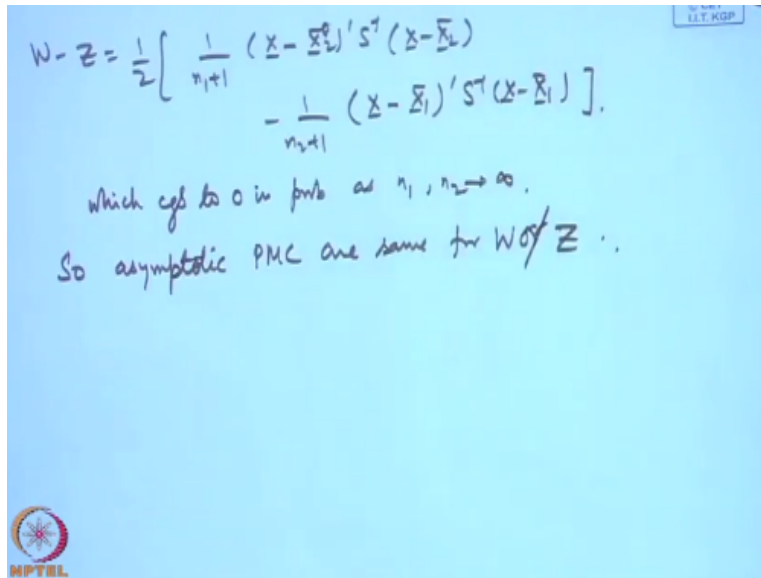 © CET
I.I.T. KGP
W - Z = 1/2 [ 1/(n₁+1) (x̲ - x̲̄₂)' S⁻¹ (x̲ - x̲̄₂)
- 1/(n₂+1) (x̲ - x̲̄₁)' S⁻¹ (x̲ - x̲̄₁) ].
which cgs to 0 in prob as n₁, n₂ → ∞.
So asymptotic PMC are same for W or Z .
NPTEL